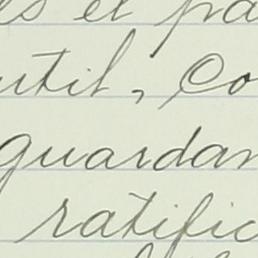 es et pa
util, Co
guardan
ratific